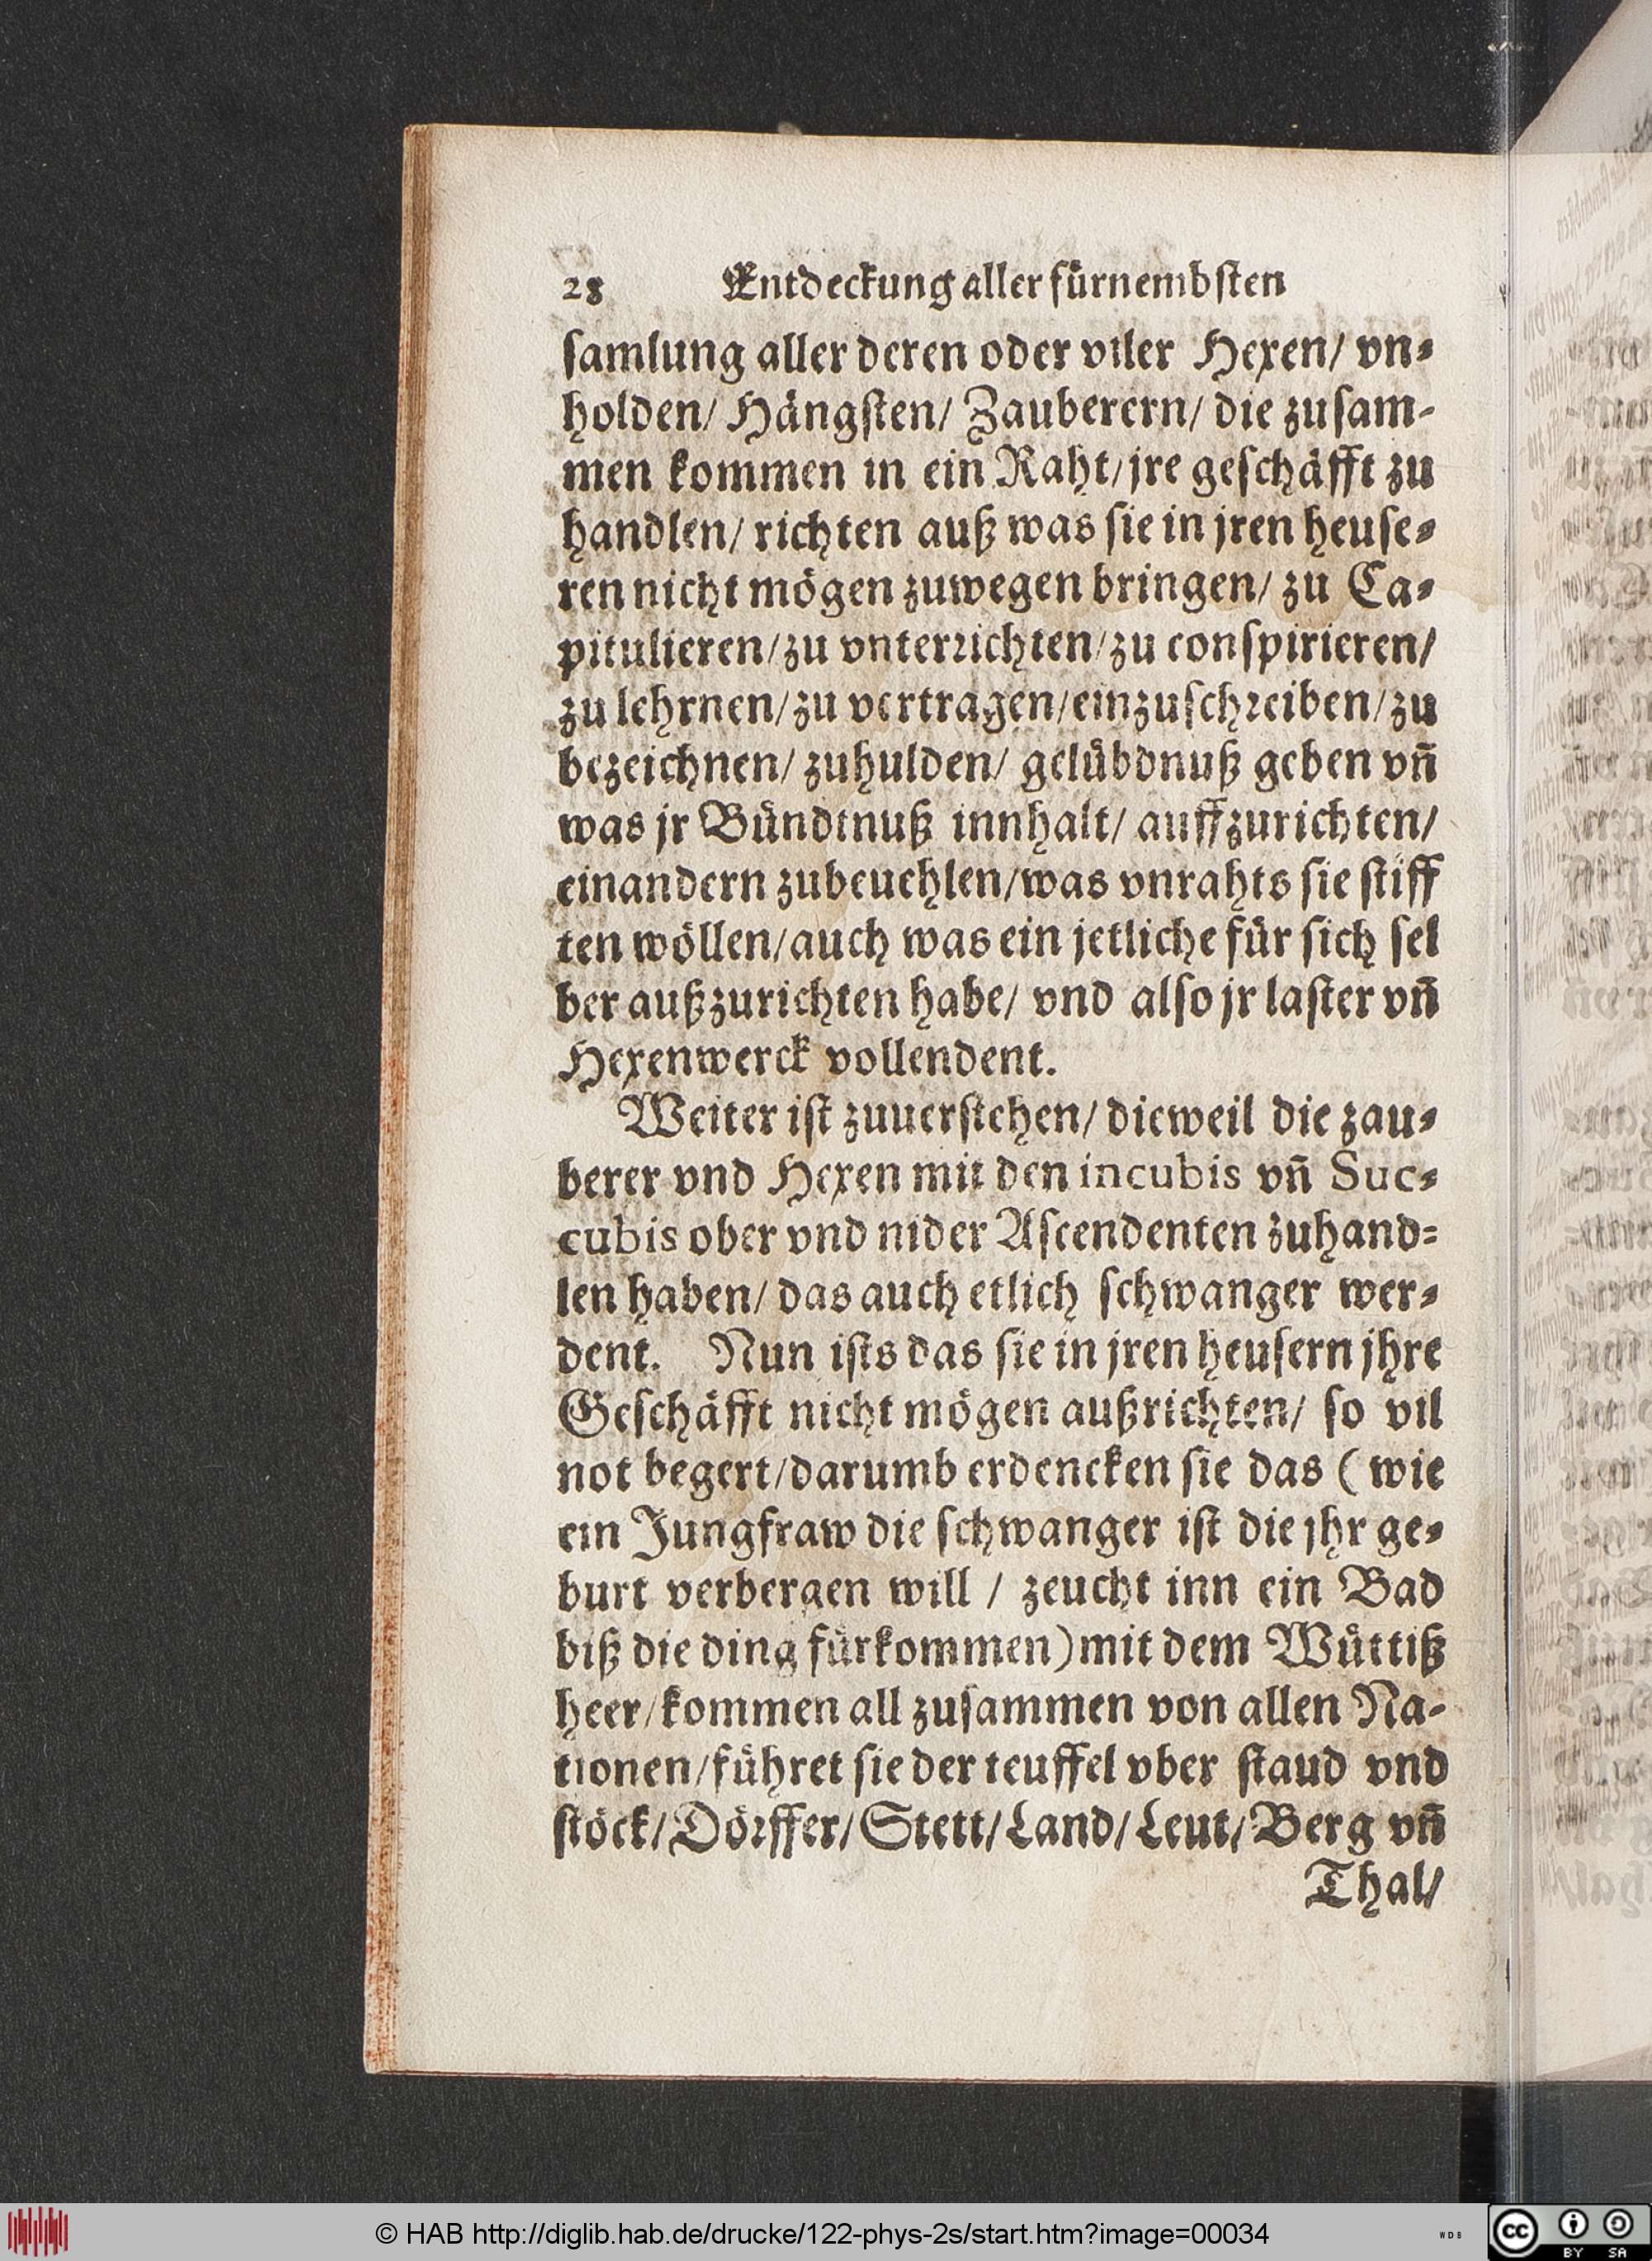 28 Entdeckung aller fürnembsten
samlung aller deren oder viler Hexen/ vn⸗
holden/ Hängsten/ Zauberern/ die zusam-
men kommen in ein Raht/ jre geschäfft zu
handlen/ richten auß was sie in jren heuse⸗
ren nicht mögen zuwegen bringen/ zu Ca⸗
pitulieren/ zu vnterrichten/ zu conspirieren/
zu lehrnen/ zu vertragen/ einzuschreiben/ zu
bezeichnen/ zuhulden/ gelübdnuß geben vñ
was jr Bündtnuß innhalt/ auffzurichten/
einandern zubeuehlen/ was vnrahts sie stiff
ten wöllen/ auch was ein jetliche für sich sel
ber außzurichten habe/ vnd also jr laster vñ
Hexenwerck vollendent.
Weiter ist zuuerstehen/ dieweil die zau⸗
berer vnd Hexen mit den incubis vñ Suc⸗
cubis ober vnd nider Ascendenten zuhand⸗
len haben/ das auch etlich schwanger wer⸗
dent. Nun ists das sie in jren heusern jhre
Geschäfft nicht mögen außrichten/ so vil
not begert/ darumb erdencken sie das ( wie
ein Jungfraw die schwanger ist die jhr ge⸗
burt verbergen will / zeucht inn ein Bad
biß die ding fürkommen) mit dem Wüttiß
heer/ kommen all zusammen von allen Na-
tionen/ führet sie der teuffel vber staud vnd
stöck/ Dörffer/ Stett/ Land/ Leut/ Berg vñ
Thal/
© HAB http://diglib.hab.de/drucke/122-phys-2s/start.htm?image=00034
WDB
cc BY SA